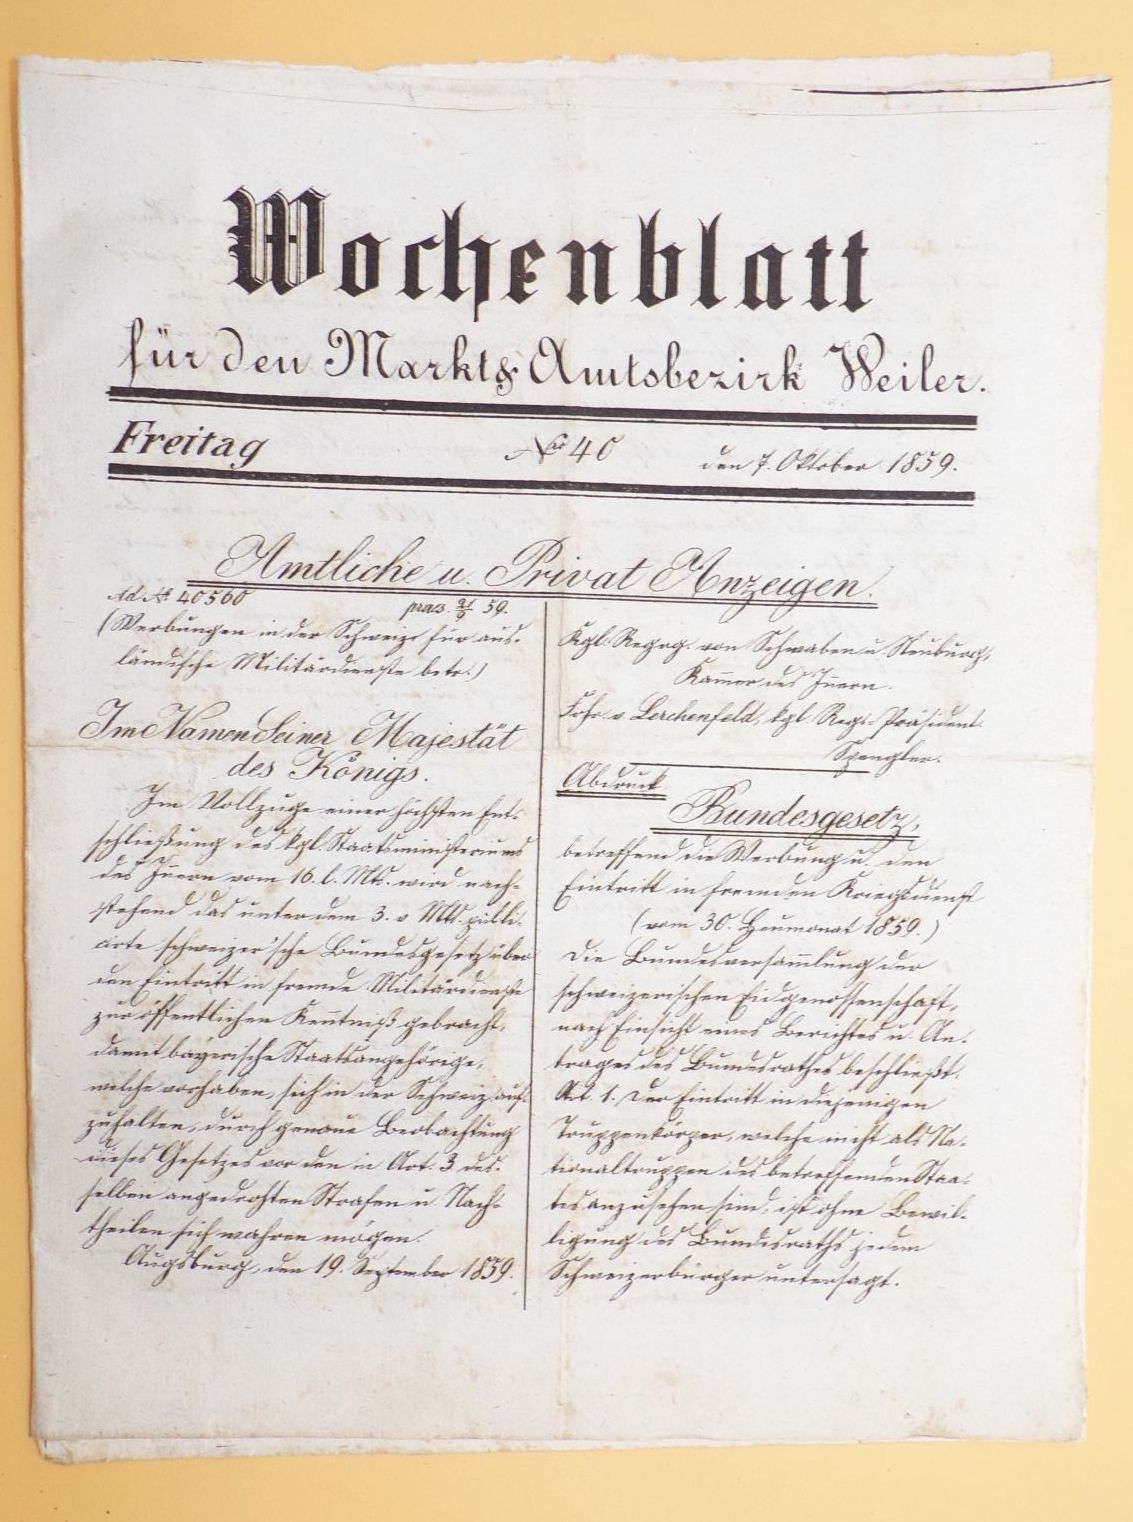 Wochenblatt
für den Markt & Amtsbezirk Weiler.
Freitag
No 40
den 7. Oktober 1859.
Amtliche u. Privat Anzeigen.
Ad No 40560
praes. 21/9 59.
(Werbungen in der Schweiz für aus-
ländische Militärdienste betr.)
Im Namen Seiner Majestät
des Königs.
Im Vollzuge einer höchsten Ent-
schließung des kgl. Staatsministeriums
des Innern vom 16. l. Mts. wird nach-
stehend das unter dem 3. v. Mts. publi-
cirte schweizer'sche Bundesgesetz über
den Eintritt in fremde Militärdienste
zur öffentlichen Kenntniß gebracht,
damit bayerische Staatsangehörige,
welche vorhaben, sich in der Schweiz auf-
zuhalten, durch genaue Beobachtung
dieses Gesetzes vor den in Art. 3 des-
selben angedrohten Strafen u. Nach-
theilen sich wahren mögen.
Augsburg, den 19. September 1859.
Kgl. Regrg. von Schwaben u. Neuburg,
Kammer des Innern.
Frhr. v. Lerchenfeld, kgl. Regs-Präsident.
Spengler.
Abdruck
Bundesgesetz,
betreffend die Werbung u. den
Eintritt in fremden Kriegsdienst
(vom 30. Heumonat 1859.)
Die Bundesversammlung der
schweizerischen Eidgenossenschaft,
nach Einsicht eines Berichtes u. An-
trages des Bundesrathes beschließt.
Art. 1. Der Eintritt in diejenigen
Truppenkörper, welche nicht als Na-
tionaltruppen des betreffenden Staa-
tes anzusehen sind, ist ohne Bewil-
ligung des Bundesraths jedem
Schweizerbürger untersagt.